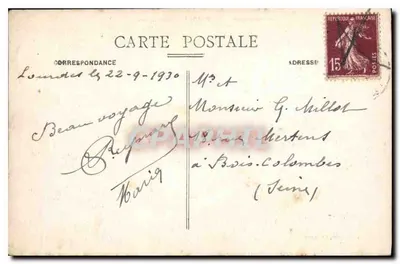 RÉPUBLIQUE FRANÇAISE
15
POSTES
CARTE POSTALE
CORRESPONDANCE
ADRESSE
Lourdes le 22-9-1930
Beau voyage
Mr et
Monsieur G. Millot
rue Mertens
à Bois-Colombes
(Seine)